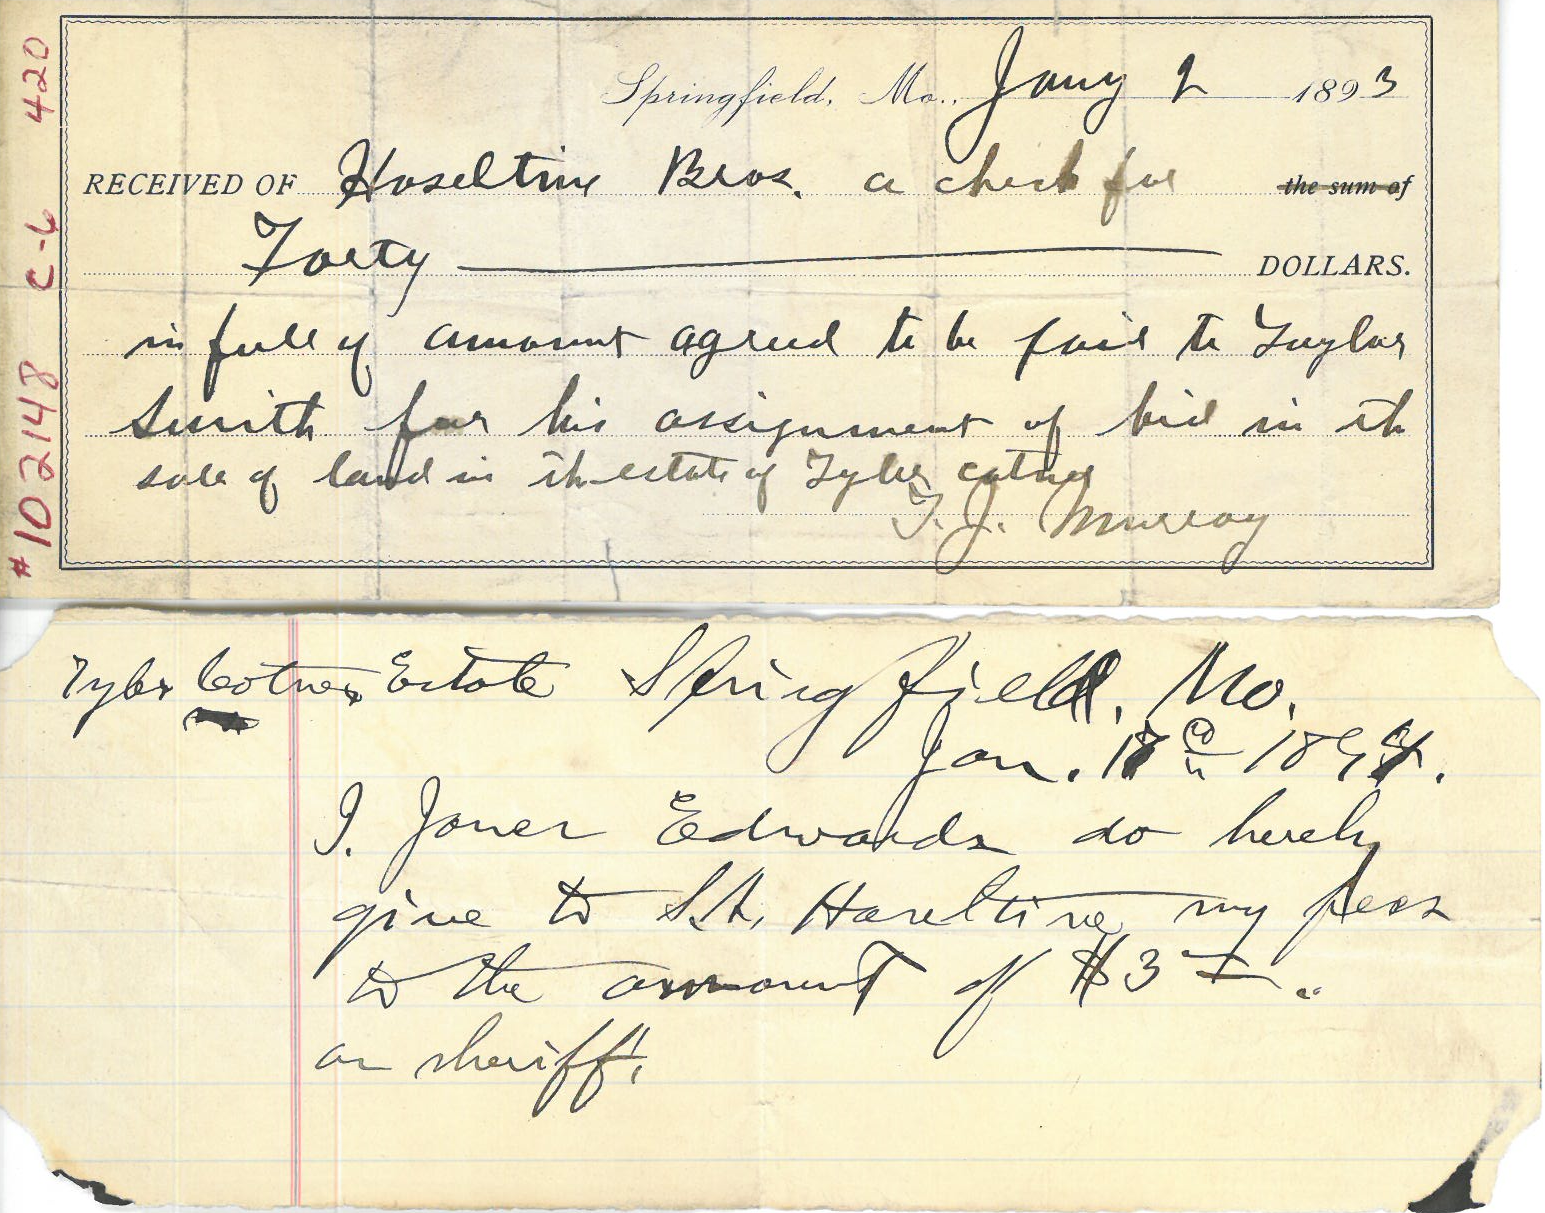 #102148 C-6 420
Springfield, Mo., Jany 2 1893
RECEIVED OF Haseltine Bros. a check for the sum of
Forty DOLLARS.
in full of amount agreed to be paid to Taylor
Smith for his assignment of bid in th
sale of land in th estate of Tyler Cotner
T. J. Murray
Tyler Cotner Estate Springfield, Mo.
Jan. 18 189
I. Jones Edwards do hereby
give to S.A. Haseltine my fees
to the amount of $3
as sheriff.